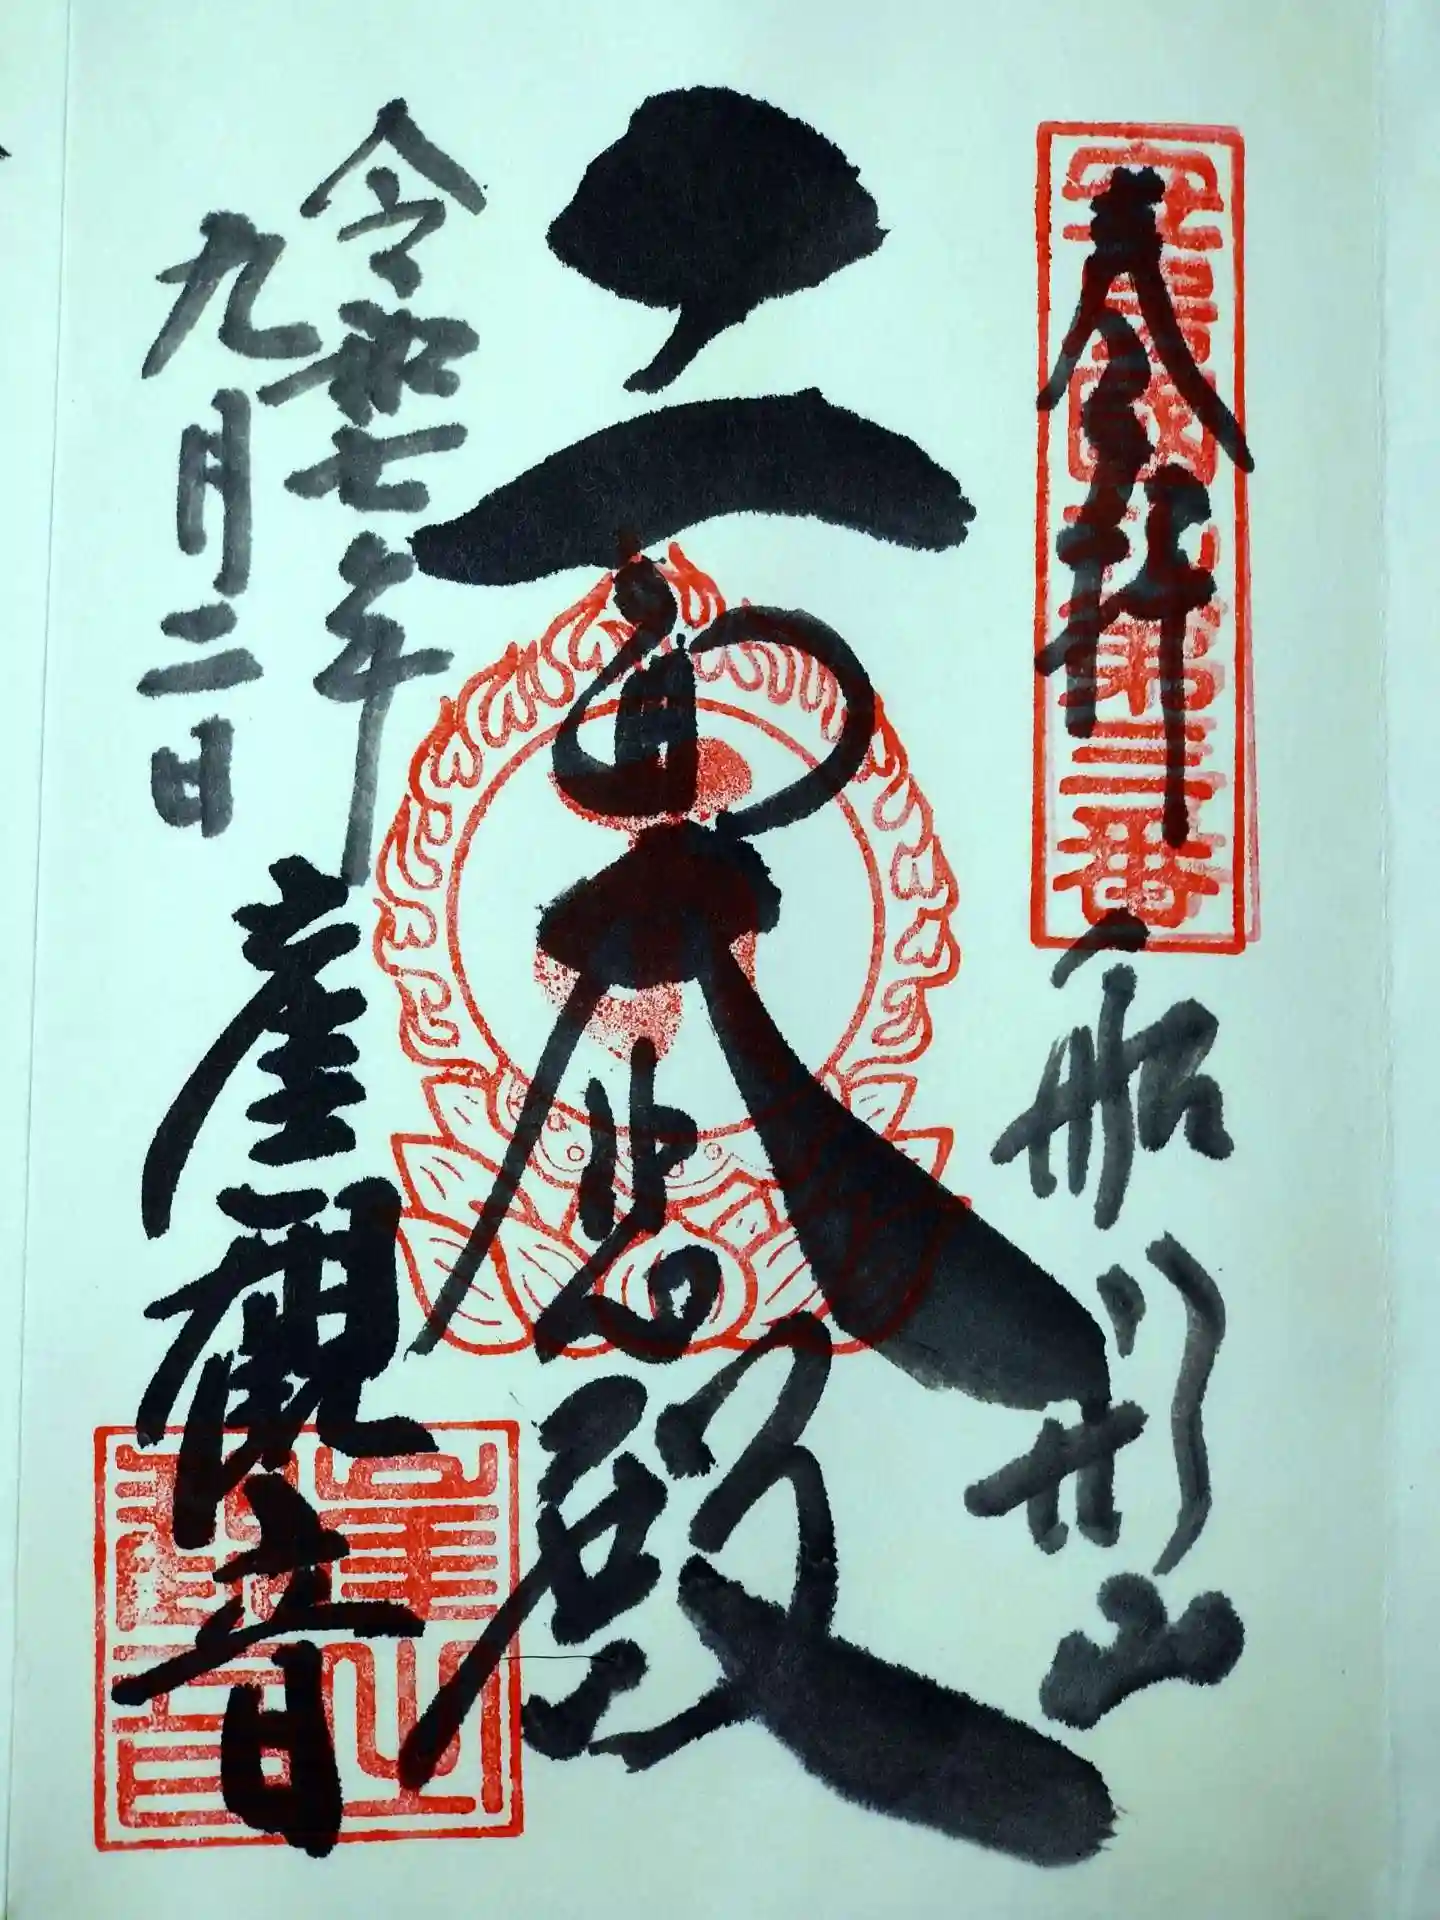 安房國札第三番
奉拝 船形山
大悲殿
令和七年
九月二日
崖観音